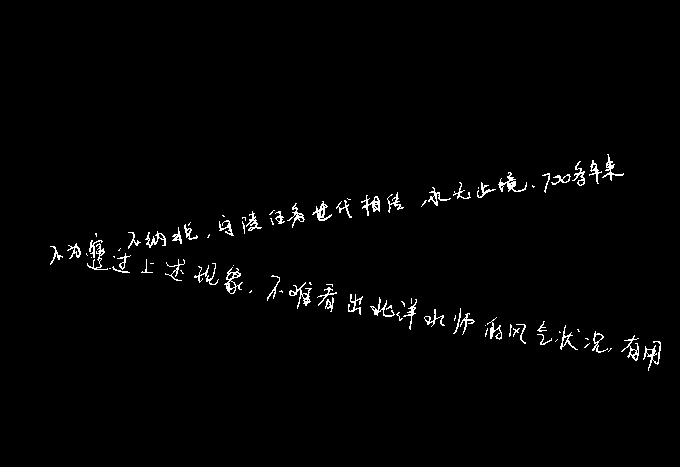 不为官，不纳税，守陵任务世代相传，永无止境。700多年来
透过上述现象，不难看出北洋水师的风气状况，有用